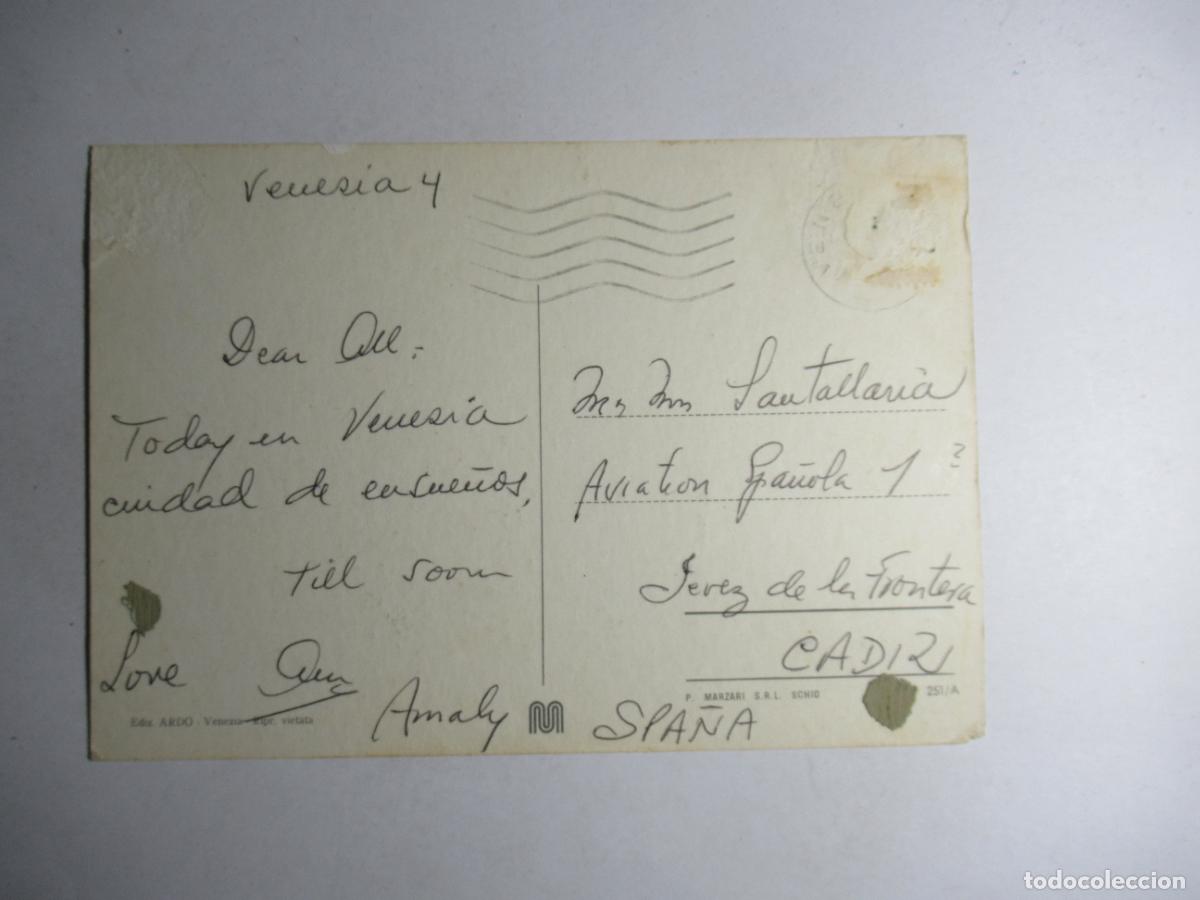 Venesia 4
Dear All:
Today en Venesia
ciudad de ensueños,
till soon
Love
Amaly
Ediz. ARDO - Venezia - Ripr. vietata
Santallaria
Aviation Española 1
Jerez de la Frontera
CADIZ
P. MARZARI S.R.L. SCHIO
251/A
SPAÑA
todocoleccion